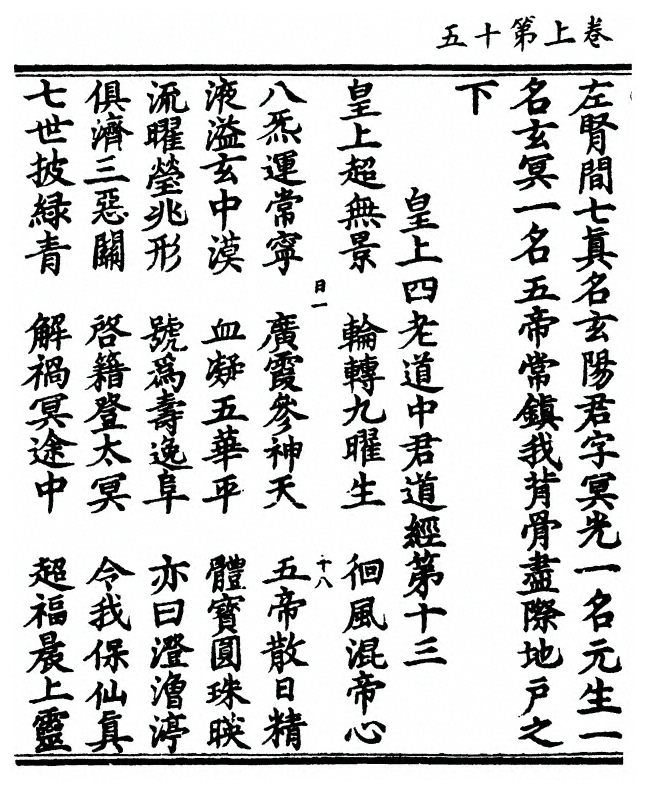 卷上第十五
左腎間七眞名玄陽君字冥光一名元生一
名玄冥一名五帝常鎭我背骨盡際地戶之
下
皇上四老道中君道經第十三
皇上超無景　輪轉九曜生　徊風混帝心
日一　十八
八炁運常寧　廣霞參神天　五帝散日精
液溢玄中漠　血凝五華平　體寶圓珠暎
流曜瑩兆形　號爲壽逸阜　亦曰澄澛渟
俱濟三惡關　啓籍登太冥　令我保仙眞
七世披緑青　解禍冥途中　超福晨上靈